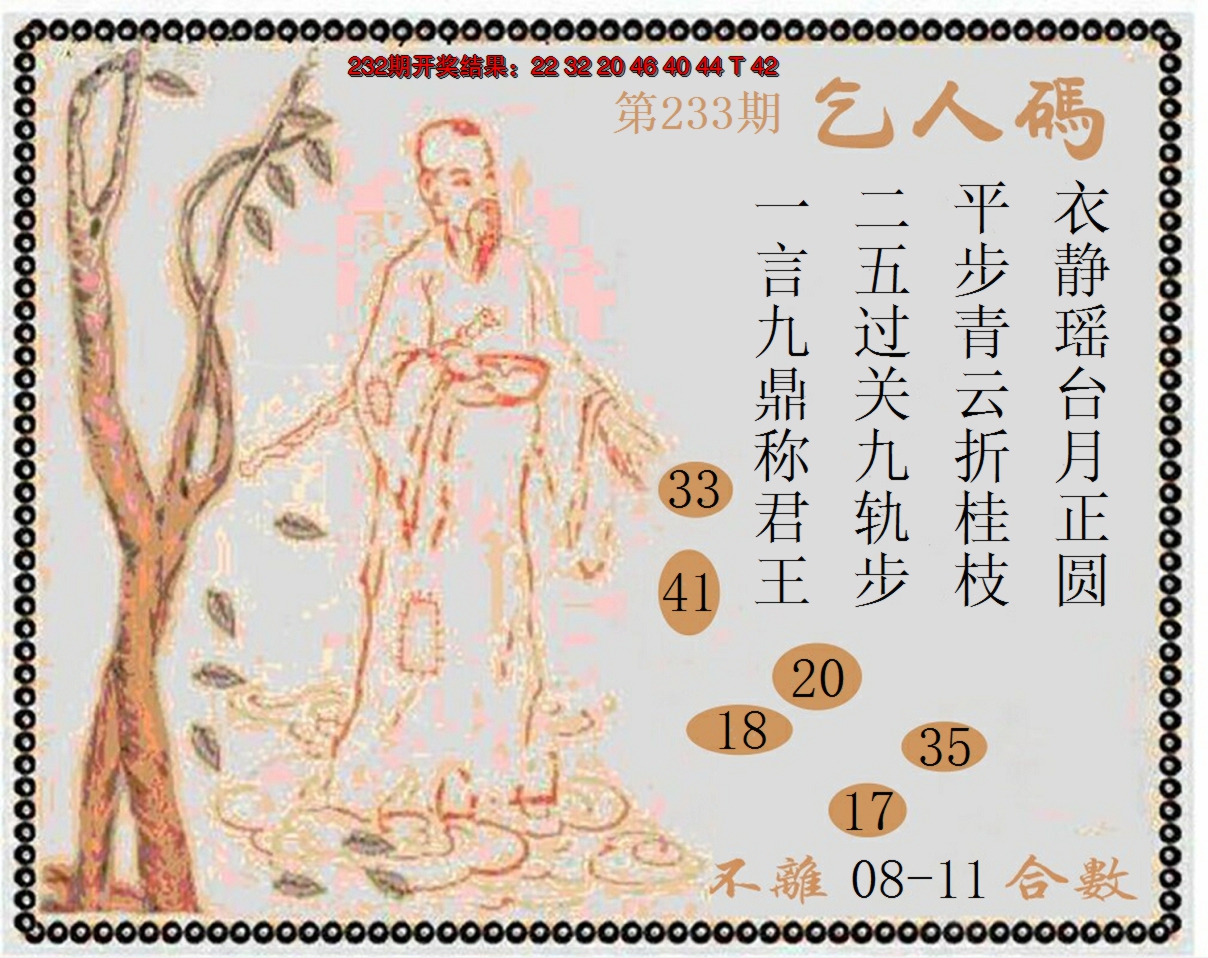 232期开奖结果：22 32 20 46 40 44 T 42
第233期 乞人碼
衣静瑶台月正圆
平步青云折桂枝
二五过关九轨步
一言九鼎称君王
33
41
20
18
35
17
不離 08-11 合數